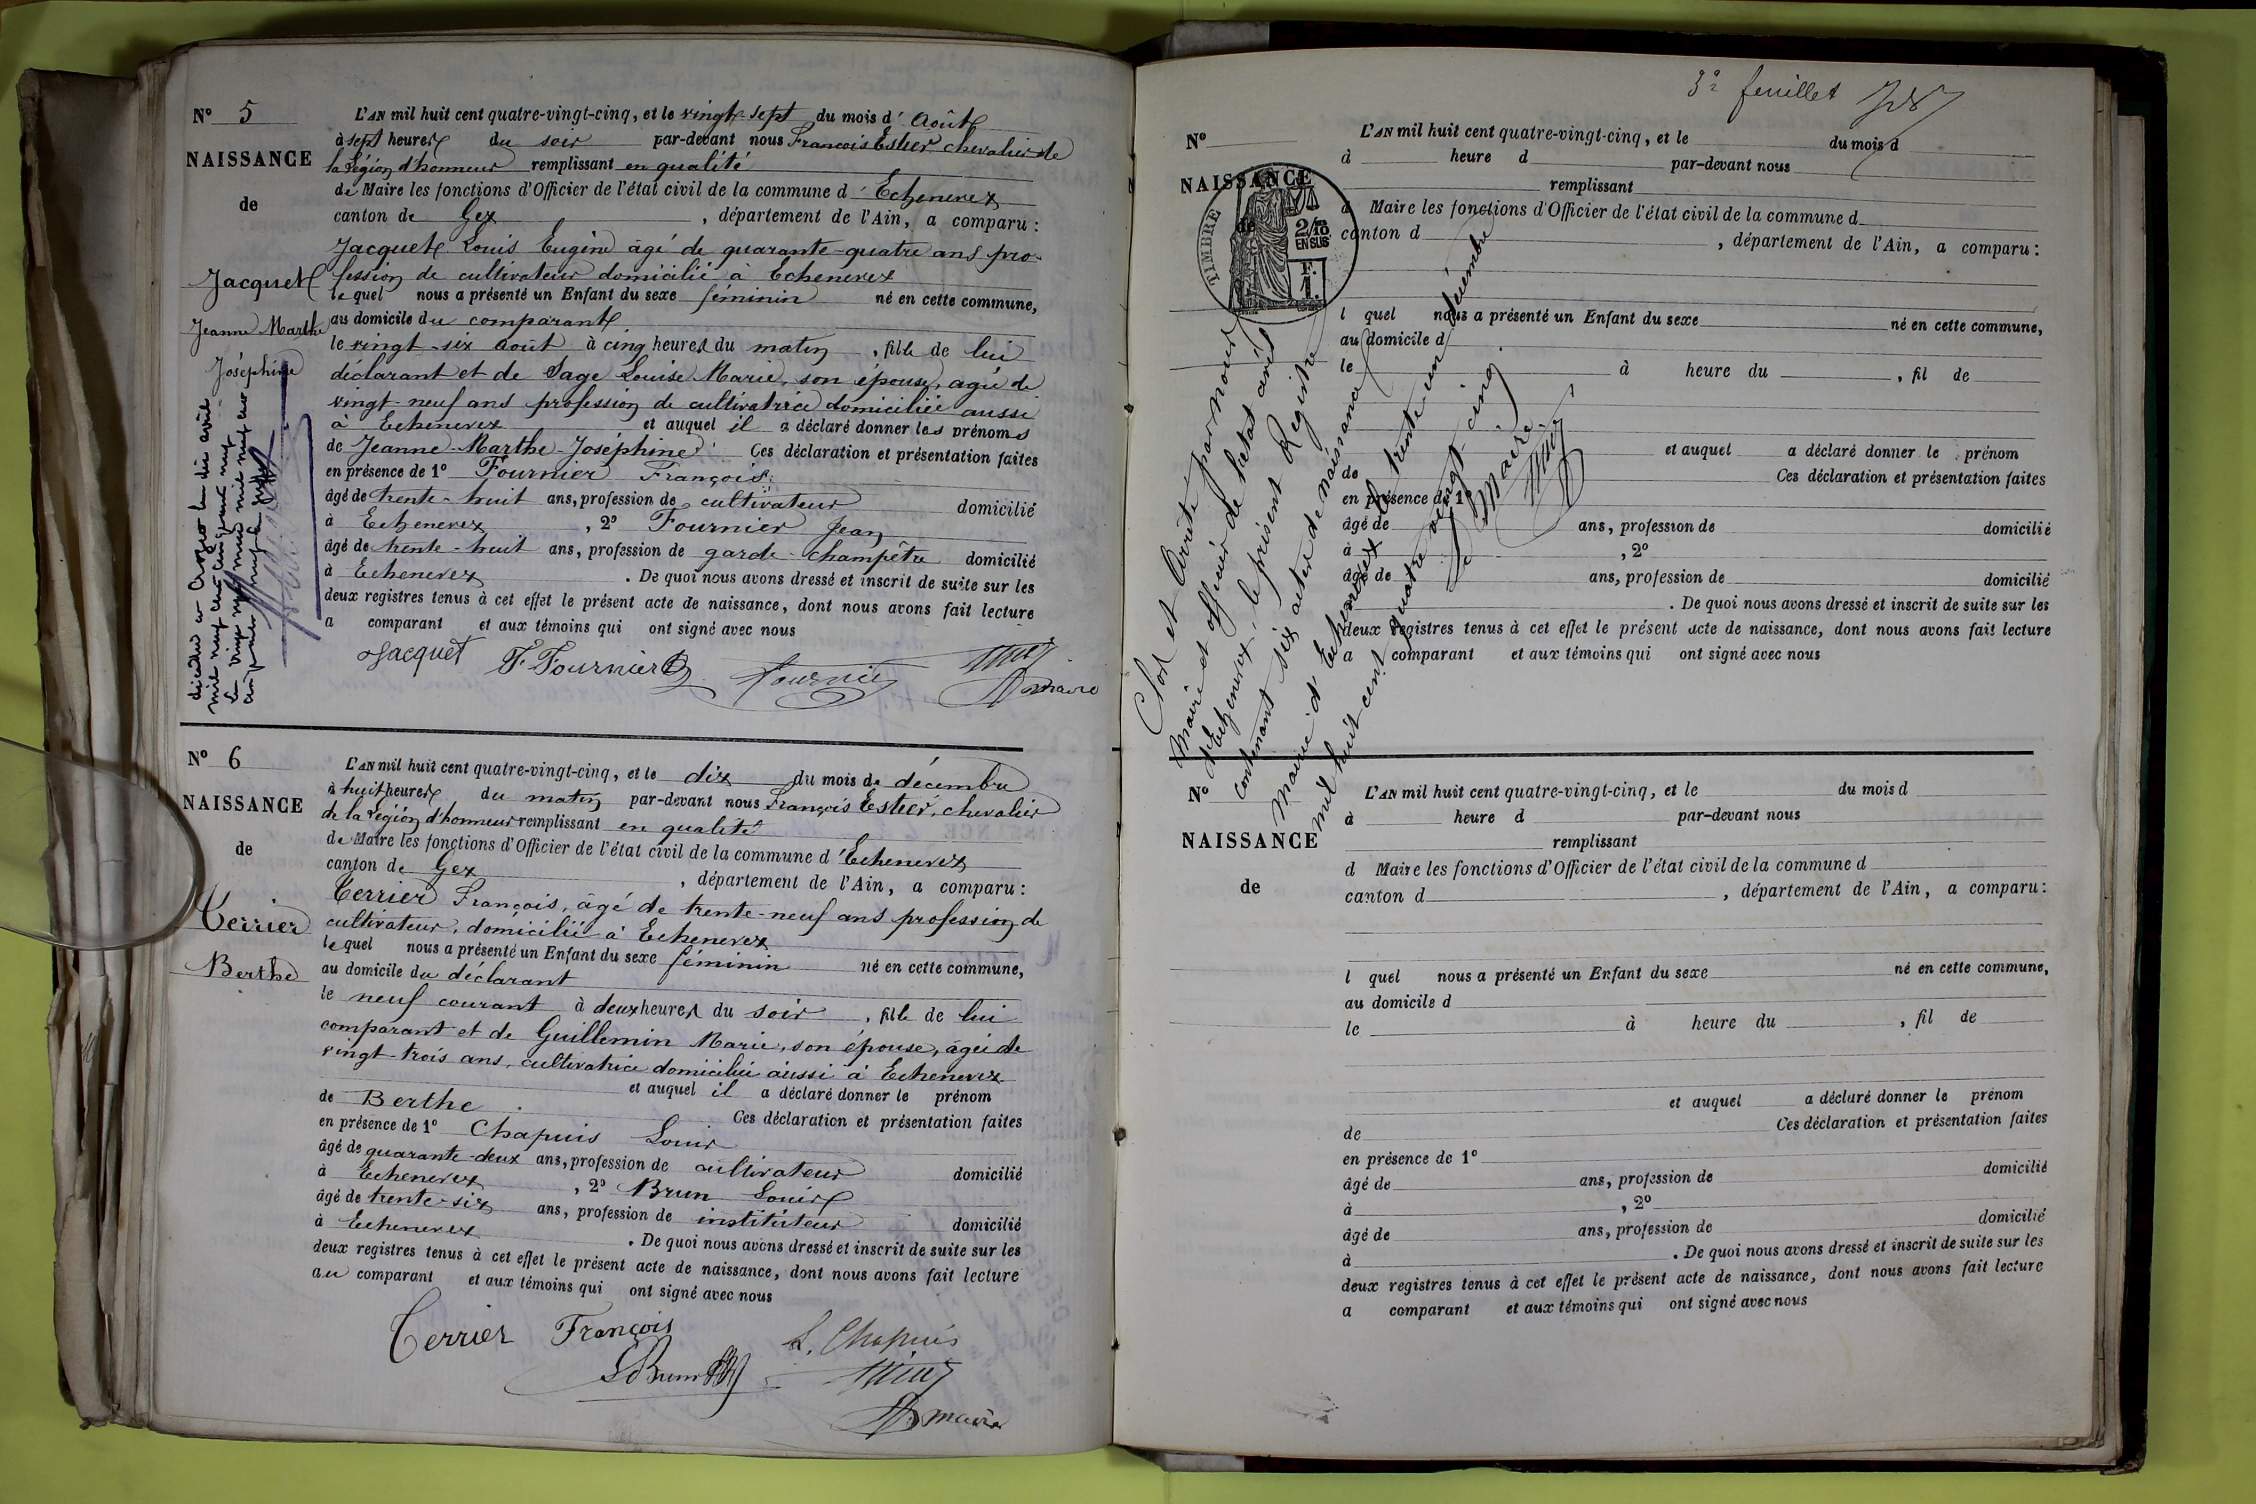 N° 5
NAISSANCE
de
Jacquet
Jeanne Marthe
Joséphine
L'AN mil huit cent quatre-vingt-cinq, et le vingt-sept du mois d'Août
à sept heures du soir par-devant nous François Estier chevalier de
la Légion d'honneur remplissant en qualité
de Maire les fonctions d'Officier de l'état civil de la commune d'Echenevex
canton de Gex, département de l'Ain, a comparu :
Jacquet Louis Eugène âgé de quarante-quatre ans pro-
fession de cultivateur domicilié à Echenevex
lequel nous a présenté un Enfant du sexe féminin né en cette commune,
au domicile du comparant
le vingt-six Août à cinq heures du matin, fille de lui
déclarant et de Sage Louise Marie, son épouse, agée de
vingt-neuf ans profession de cultivatrice domiciliée aussi
à Echenevex et auquel il a déclaré donner les prénoms
de Jeanne-Marthe-Joséphine Ces déclaration et présentation faites
en présence de 1° Fournier François
âgé de trente-huit ans, profession de cultivateur domicilié
à Echenevex, 2° Fournier Jean
âgé de trente-huit ans, profession de garde-champêtre domicilié
à Echenevex. De quoi nous avons dressé et inscrit de suite sur les
deux registres tenus à cet effet le présent acte de naissance, dont nous avons fait lecture
a comparant et aux témoins qui ont signé avec nous
Jacquet F. Fournier Fournier
maire
N° 6
NAISSANCE
de
Terrier
Berthe
L'AN mil huit cent quatre-vingt-cinq, et le dix du mois de décembre
à huit heures du matin par-devant nous François Estier, chevalier
de la Légion d'honneur remplissant en qualité
de Maire les fonctions d'Officier de l'état civil de la commune d'Echenevex
canton de Gex, département de l'Ain, a comparu :
Terrier François, âgé de trente-neuf ans profession de
cultivateur, domicilié à Echenevex
lequel nous a présenté un Enfant du sexe féminin né en cette commune,
au domicile du déclarant
le neuf courant à deux heures du soir, fille de lui
comparant et de Guillemin Marie, son épouse, âgée de
vingt-trois ans, cultivatrice domiciliée aussi à Echenevex
et auquel il a déclaré donner le prénom
de Berthe. Ces déclaration et présentation faites
en présence de 1° Chapuis Louis
âgé de quarante-deux ans, profession de cultivateur domicilié
à Echenevex, 2° Brun Louis
âgé de trente-six ans, profession de instituteur domicilié
à Echenevex. De quoi nous avons dressé et inscrit de suite sur les
deux registres tenus à cet effet le présent acte de naissance, dont nous avons fait lecture
au comparant et aux témoins qui ont signé avec nous
Terrier François L. Chapuis
L Brun
maire
3e feuillet
N°
NAISSANCE
de
TIMBRE
2/10
EN SUS
F.
1.
L'AN mil huit cent quatre-vingt-cinq, et le du mois d
à heure d par-devant nous
remplissant
d Maire les fonctions d'Officier de l'état civil de la commune d
canton d, département de l'Ain, a comparu :
l quel nous a présenté un Enfant du sexe né en cette commune,
au domicile d
le à heure du, fil de
et auquel a déclaré donner le prénom
de Ces déclaration et présentation faites
en présence de 1°
âgé de ans, profession de domicilié
à, 2°
âgé de ans, profession de domicilié
. De quoi nous avons dressé et inscrit de suite sur les
deux registres tenus à cet effet le présent acte de naissance, dont nous avons fait lecture
a comparant et aux témoins qui ont signé avec nous
Clos et Arrêté par nous
Maire et officier de l'état civil
d'Echenevex, le présent Registre
contenant six actes de naissance
Mairie d'Echenevex le trente un décembre
mil huit cent quatre vingt cinq.
Le Maire
N°
NAISSANCE
de
L'AN mil huit cent quatre-vingt-cinq, et le du mois d
à heure d par-devant nous
remplissant
d Maire les fonctions d'Officier de l'état civil de la commune d
canton d, département de l'Ain, a comparu :
l quel nous a présenté un Enfant du sexe né en cette commune,
au domicile d
le à heure du, fil de
et auquel a déclaré donner le prénom
de Ces déclaration et présentation faites
en présence de 1°
âgé de ans, profession de domicilié
à, 2°
âgé de ans, profession de domicilié
à. De quoi nous avons dressé et inscrit de suite sur les
deux registres tenus à cet effet le présent acte de naissance, dont nous avons fait lecture
a comparant et aux témoins qui ont signé avec nous